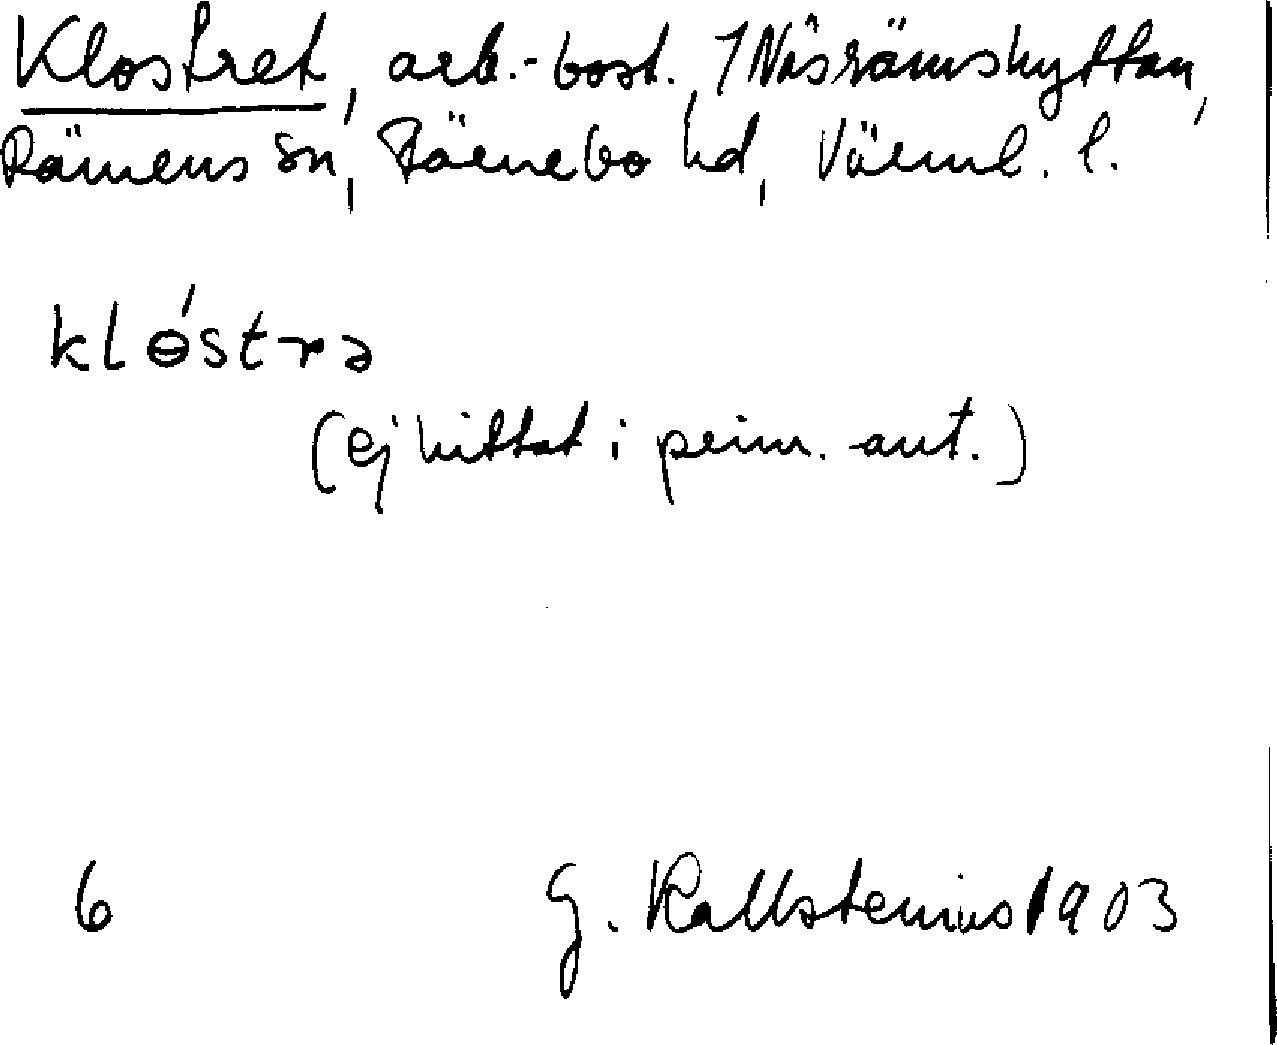 Klostret, arb.-bost., 1 Näsrämshyttan,
Rämens sn, Färnebo hd, Värml. l.
klɵ́strə
(ej hittat i prim. ant.)
6 G. Kallstenius 1903